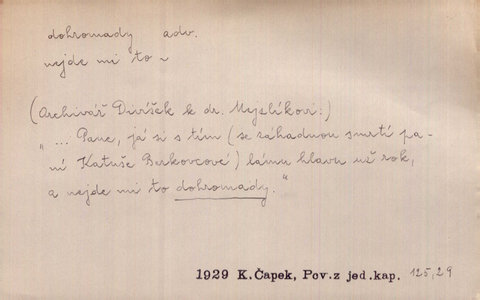 dohromady adv.
nejde mi to ~
(Archivář Divíšek k dr. Mejzlíkovi:)
" ... Pane, já si s tím (se záhadnou smrtí pa-
ní Katuše Berkovcové) lámu hlavu už rok,
a nejde mi to dohromady."
1929 K.Čapek, Pov.z jed.kap. 125,29